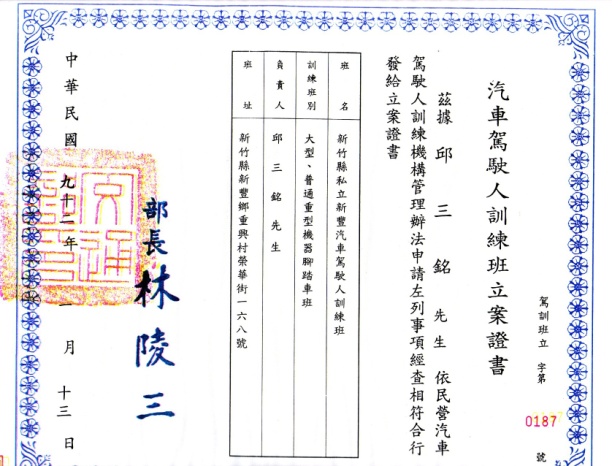 汽車駕駛人訓練班立案證書
駕訓班立 字第 0187 號
茲據 邱三銘 先生 依民營汽車
駕駛人訓練機構管理辦法申請左列事項經查相符合行
發給立案證書
班名 新竹縣私立新豐汽車駕駛人訓練班
訓練班別 大型、普通重型機器腳踏車班
負責人 邱三銘先生
班址 新竹縣新豐鄉重興村榮華街一六八號
部長 林陵三
中華民國 九十二年 一月 十三日